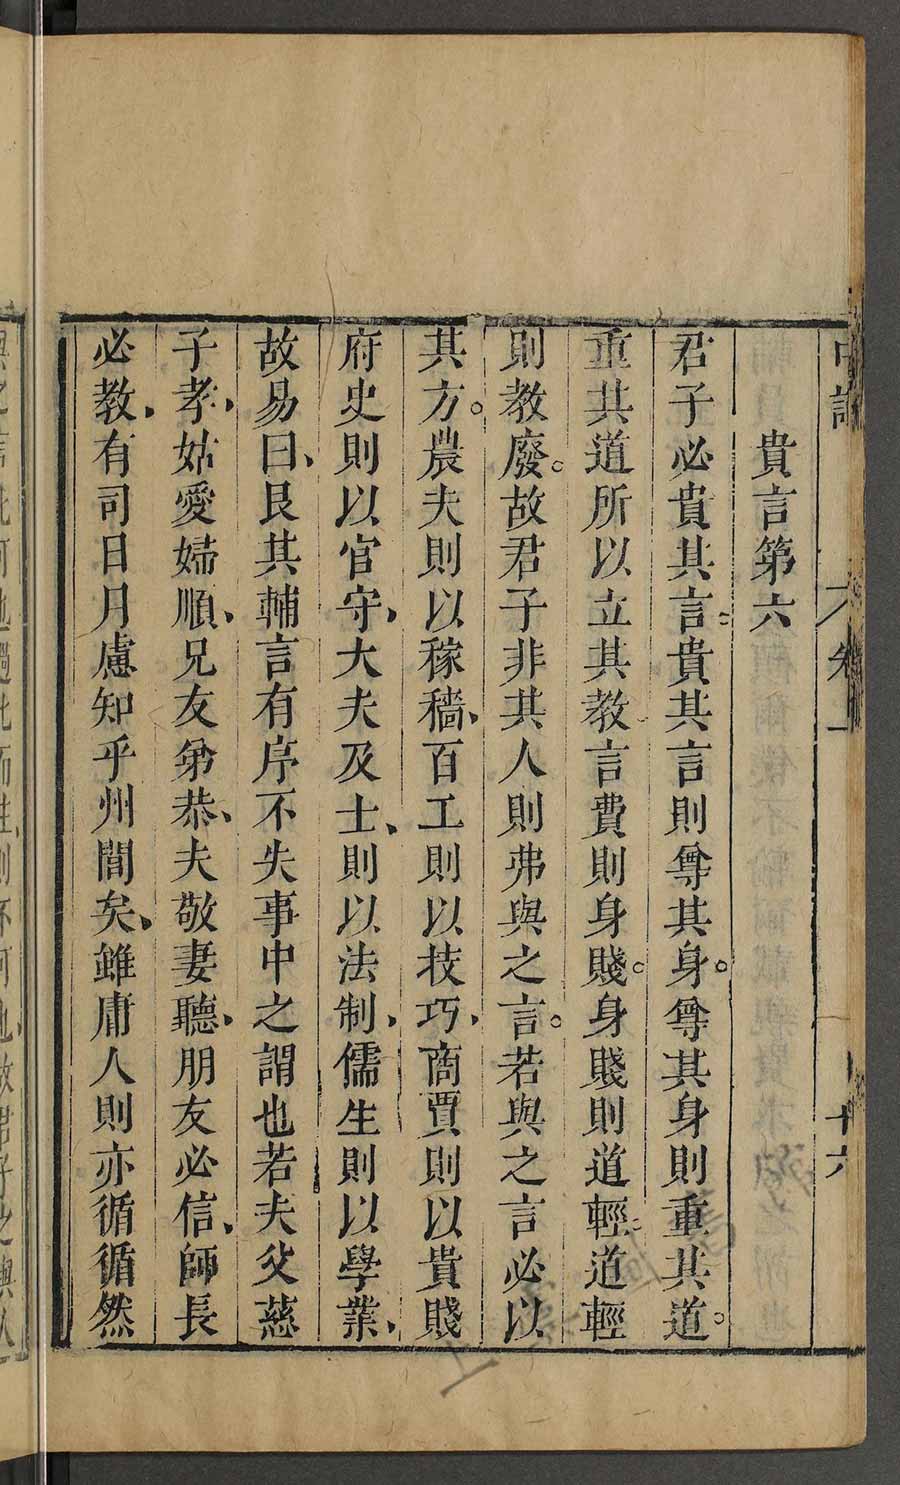 貴言第六
君子必貴其言。貴其言則尊其身。尊其身則重其道。
重其道所以立其教言費則身賤。身賤則道輕道輕
則教廢。故君子非其人則弗與之言。若與之言必以
其方。農夫則以稼穡、百工則以技巧、商賈則以貴賤
府史則以官守、大夫及士、則以法制、儒生則以學業、
故易曰、艮其輔言有序不失事中之謂也若夫父慈
子孝、姑愛婦順、兄友弟恭、夫敬妻聽、朋友必信、師長
必教、有司日月慮知乎州閭矣、雖庸人則亦循循然